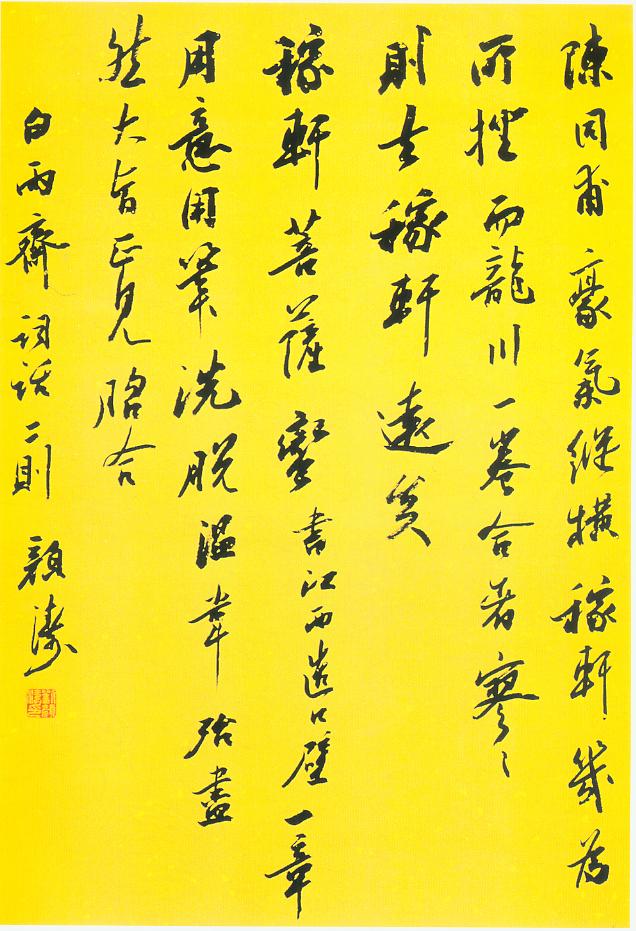 陳同甫豪氣縱橫稼軒幾為
所挫而龍川一卷合者寥〻
則去稼軒遠矣
稼軒菩薩蠻書江西造口壁一章
用意用筆洗脫溫韋殆盡
然大旨正見脗合
白雨齋詞话二則 顏濤